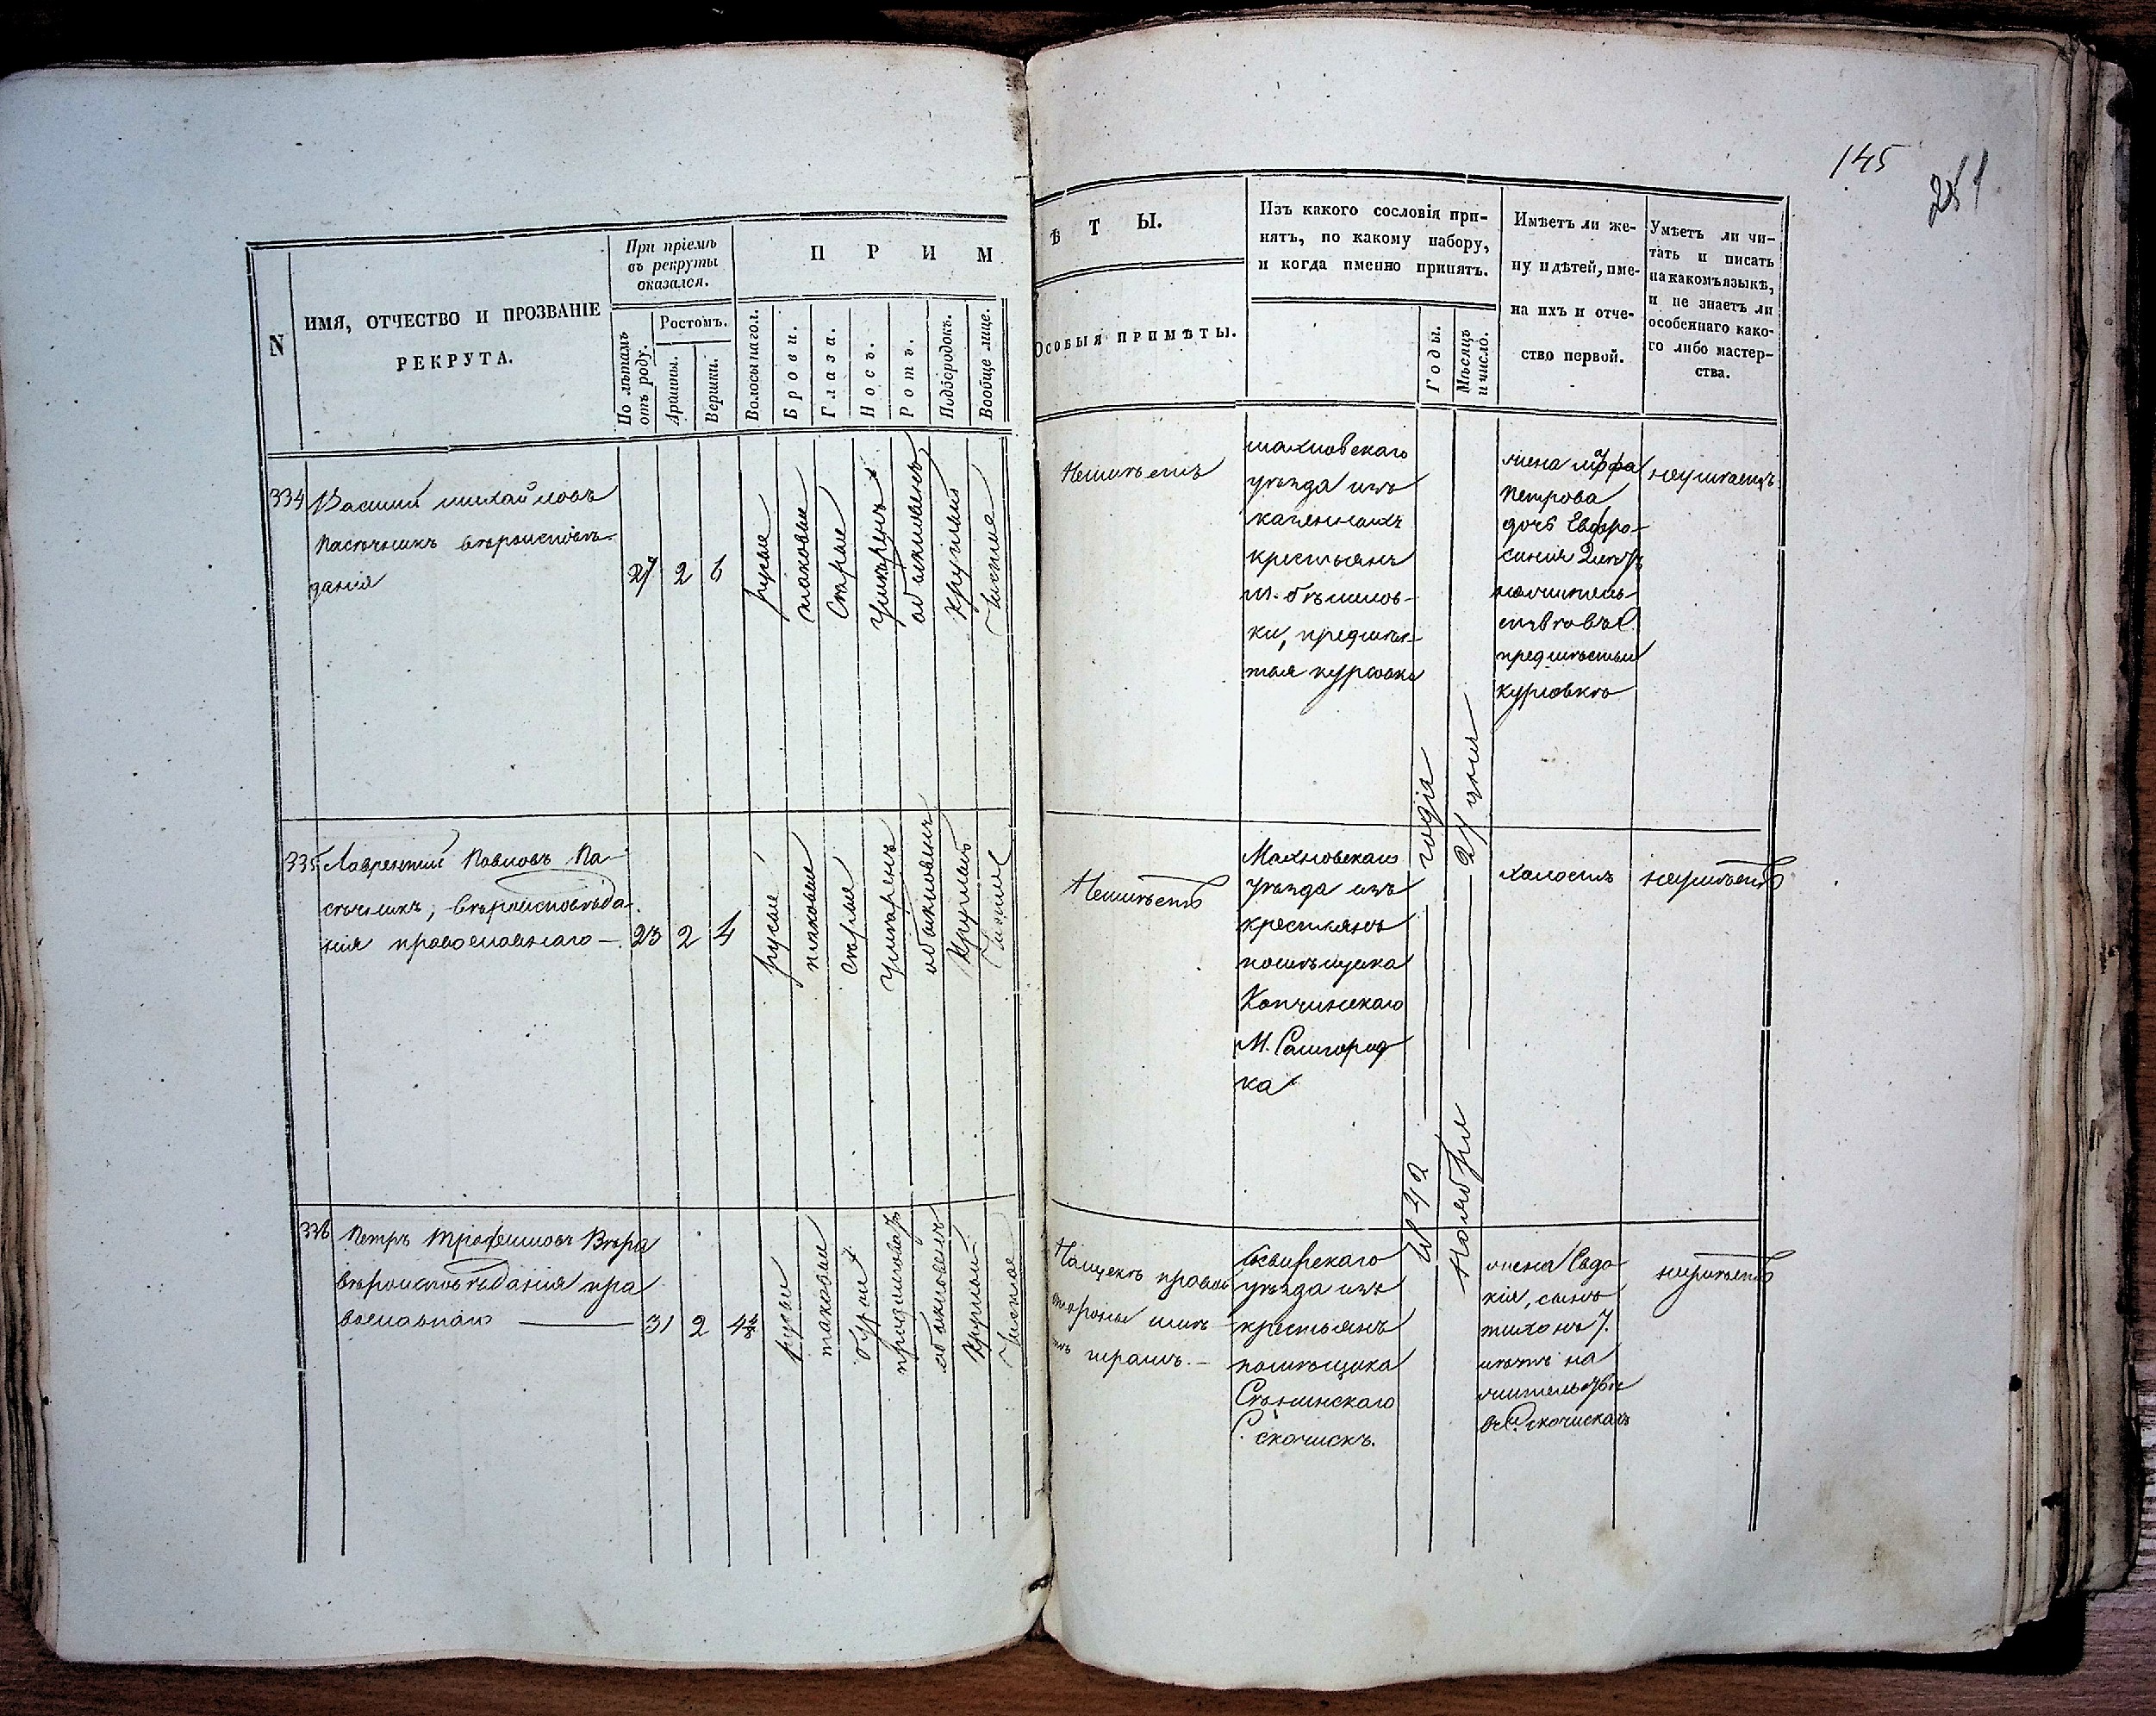 145
251
N
ИМЯ, ОТЧЕСТВО И ПРОЗВАНІЕ
РЕКРУТА.
При пріемѣ
въ рекруты
оказался.
По лѣтамъ
отъ роду.
Ростомъ.
Аршины.
Вершки.
П Р И М
Волосы на гол.
Брови.
Глаза.
Носъ.
Ротъ.
Подбородокъ.
Вообще лице.
Ѣ Т Ы.
Особыя примѣты.
Изъ какого сословія при-
нятъ, по какому набору,
и когда именно принятъ.
Годы.
Мѣсяцъ
и число.
Имѣетъ ли же-
ну и дѣтей, име-
на ихъ и отче-
ство первой.
Умѣетъ ли чи-
тать и писать
на какомъ языкѣ,
и не знаетъ ли
особеннаго како-
го либо мастер-
ства.
334
Василий михайловъ
Пасѣчникъ вѣроисповѣ-
данія
27
2
6
русые
таковые
Сѣрые
умѣренъ
обыкновенъ
Круглый
Чистое
Неимѣетъ
махновскаго
уѣзда изъ
казенныхъ
крестьянъ
м. бѣлилов-
ки, предмѣс-
тья курловки
жена
Петрова
дочь Евфро-
синія
жительс-
предмѣстьи
курловкѣ
неумѣетъ
335
Лаврентий Павловъ Па-
сѣчникъ, вѣроисповѣда-
нія православнаго —
23
2
4
русые
таковые
сѣрые
умѣренъ
обыкновенъ
Круглый
Чистое
Неимѣетъ
Махновскаго
уѣзда изъ
крестьянъ
помѣщика
Копчинскаго
М. Самгород
ка
холостъ
неумѣетъ
336
Петръ Трофимовъ
вѣроисповѣданія пра
вославнаго —
31
2
4
русые
таковые
бурые
продолговатъ
обыкновенъ
Круглой
Чистое
На щекѣ правой
стороны имѣ-
етъ шрамъ. —
Сквирскаго
уѣзда изъ
крестьянъ
помѣщика
С.
жена Евдо
кія, сынъ
тихонъ 7.
лѣтъ на
жительствѣ
неумѣетъ
года
Ноября
дня